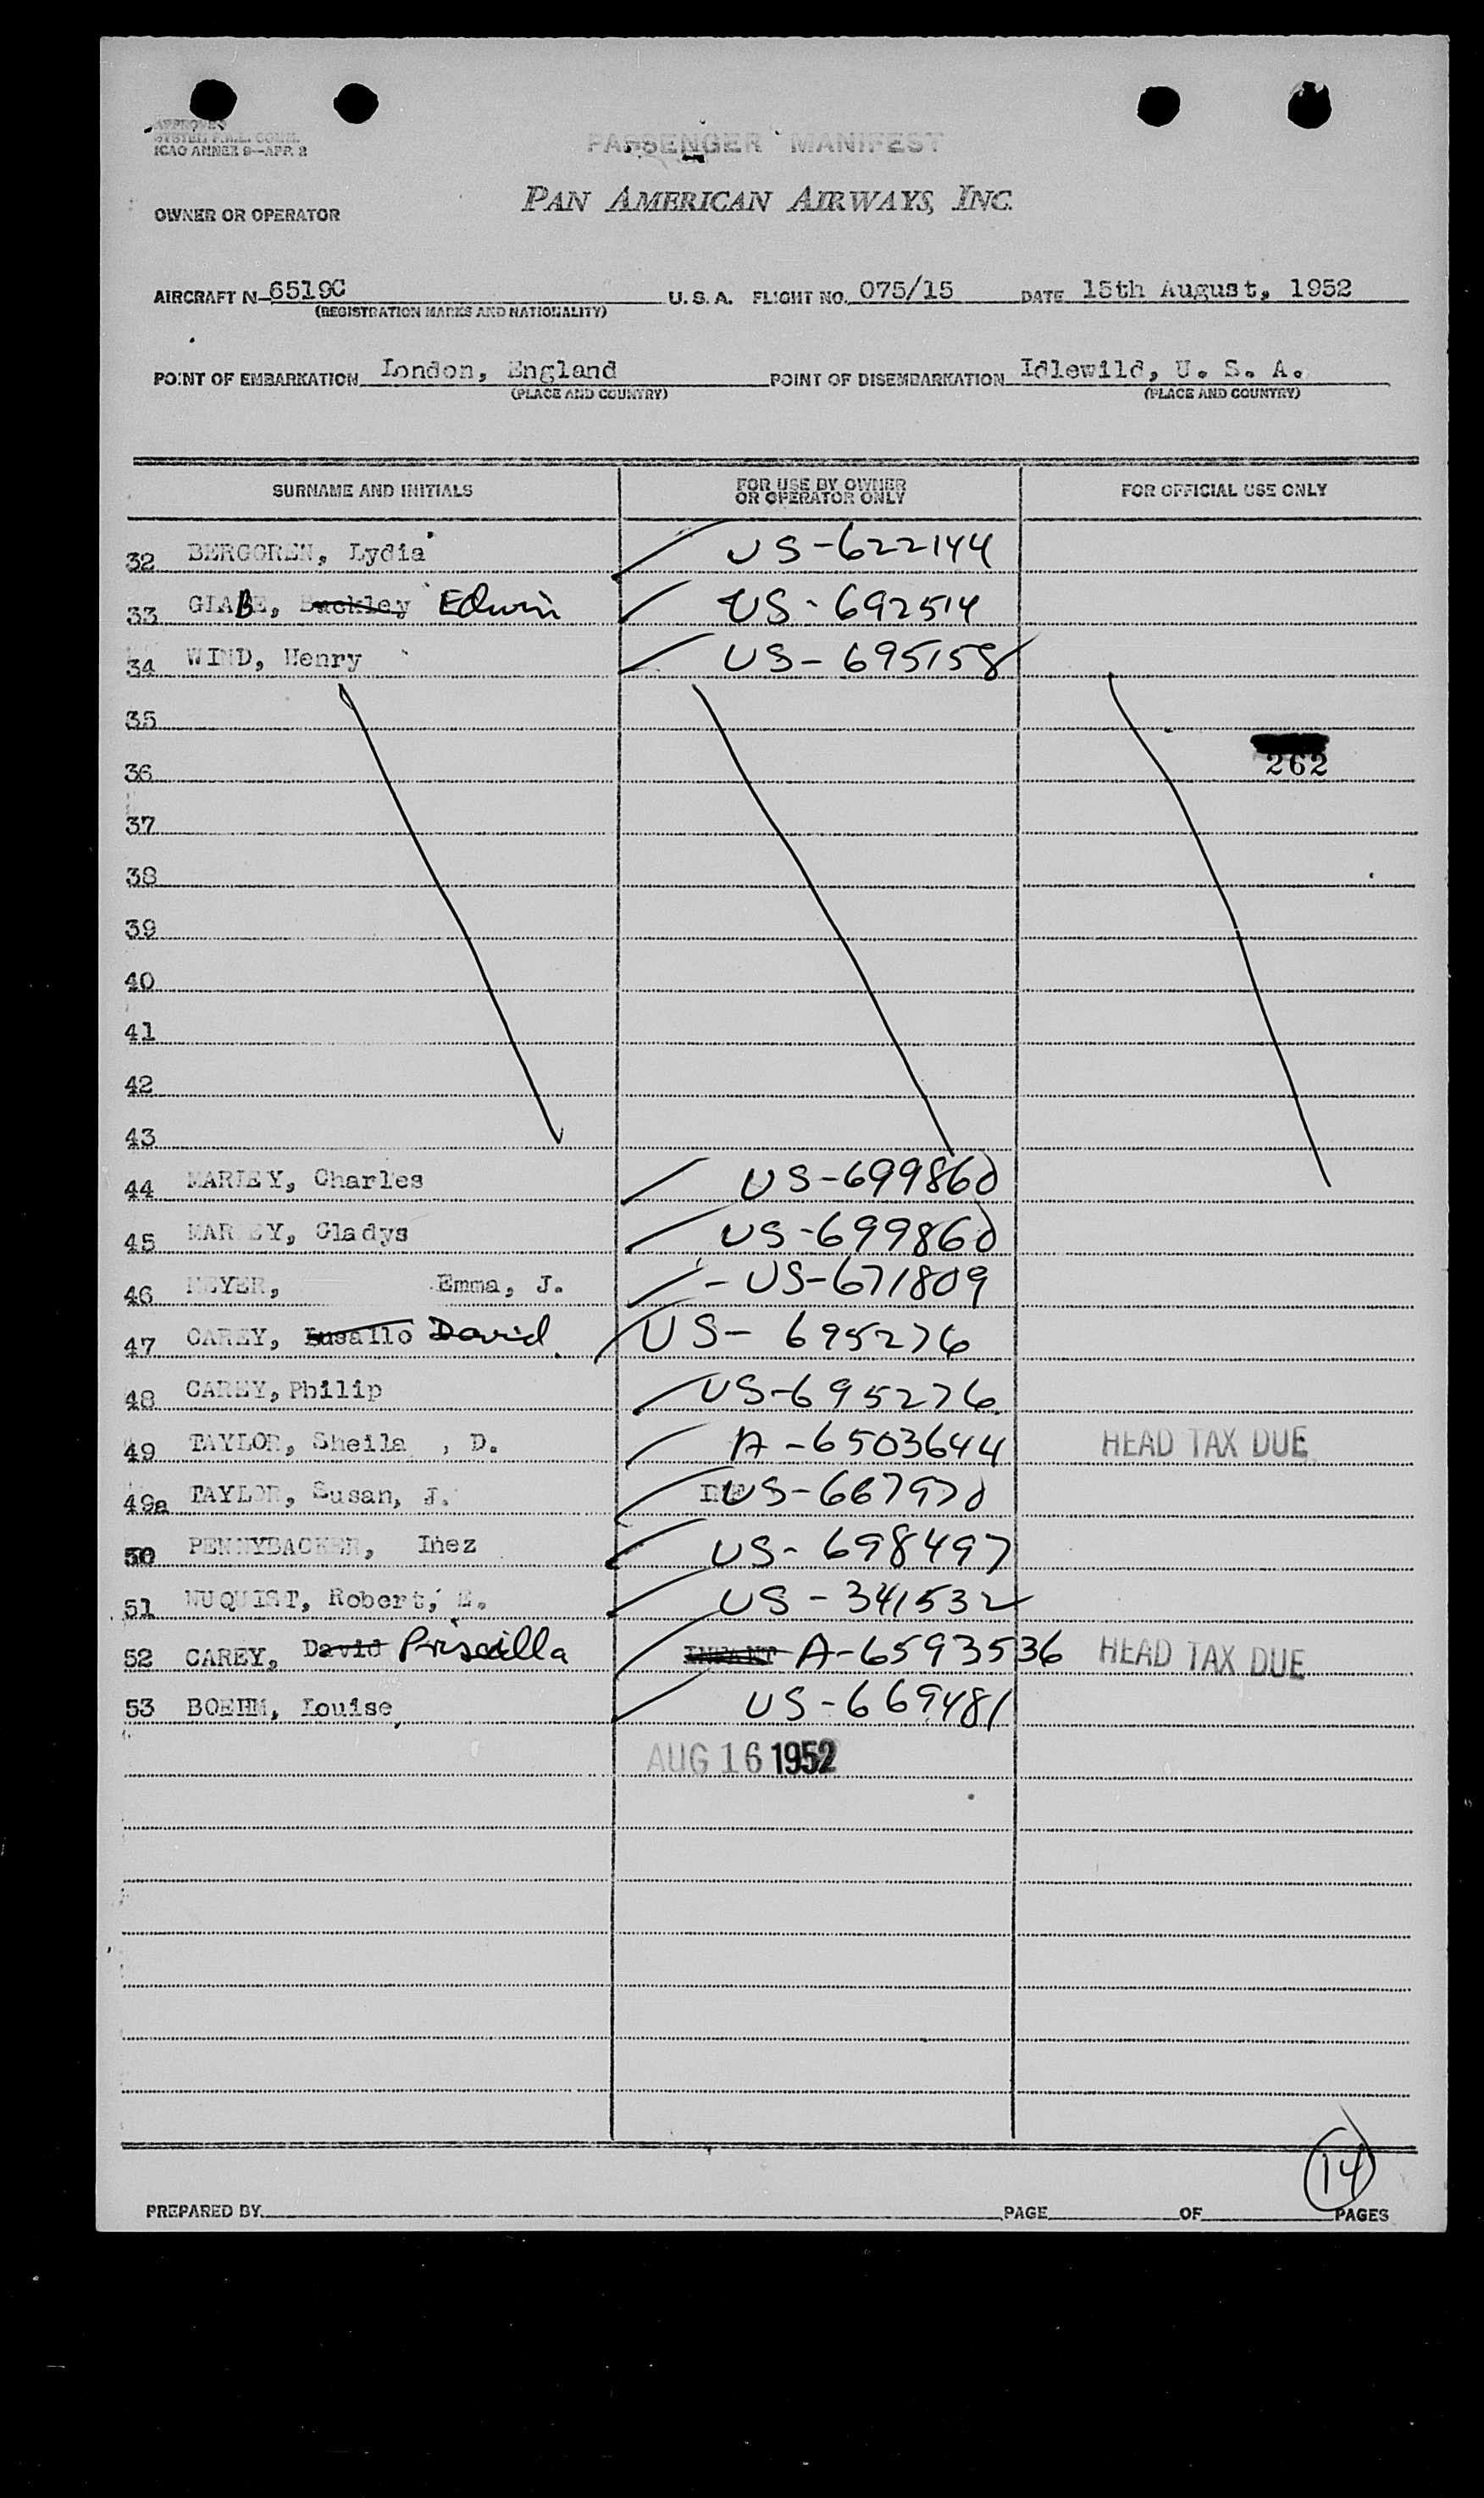 APPROVED
SYSTEM F.A.L. COMM.
ICAO ANNEX 9—APP. 2
PASSENGER MANIFEST
PAN AMERICAN AIRWAYS, INC.
OWNER OR OPERATOR
AIRCRAFT N-6519C U. S. A. FLIGHT NO. 075/15 DATE 15th August, 1952
(REGISTRATION MARKS AND NATIONALITY)
POINT OF EMBARKATION London, England POINT OF DISEMBARKATION Idlewild, U. S. A.
(PLACE AND COUNTRY) (PLACE AND COUNTRY)
SURNAME AND INITIALS FOR USE BY OWNER OR OPERATOR ONLY FOR OFFICIAL USE ONLY
32 BERGOREN, Lydia US-622144
33 GIABE, Buckley Edwin US-692514
34 WIND, Henry US-695158
35
262
36
37
38
39
40
41
42
43
44 MARLEY, Charles US-699860
45 MARLEY, Gladys US-699860
46 MEYER, Emma, J. - US-671809
47 CAREY, David US-695276
48 CAREY, Philip US-695276
49 TAYLOR, Sheila , D. A-6503644 HEAD TAX DUE
49a TAYLOR, Susan, J. US-667970
50 PENNYBACKER, Inez US-698497
51 NUQUIST, Robert, E. US-341532
52 CAREY, David Priscilla INFANT A-6593536 HEAD TAX DUE
53 BOEHM, Louise US-669481
AUG 16 1952
14
PREPARED BY PAGE OF PAGES